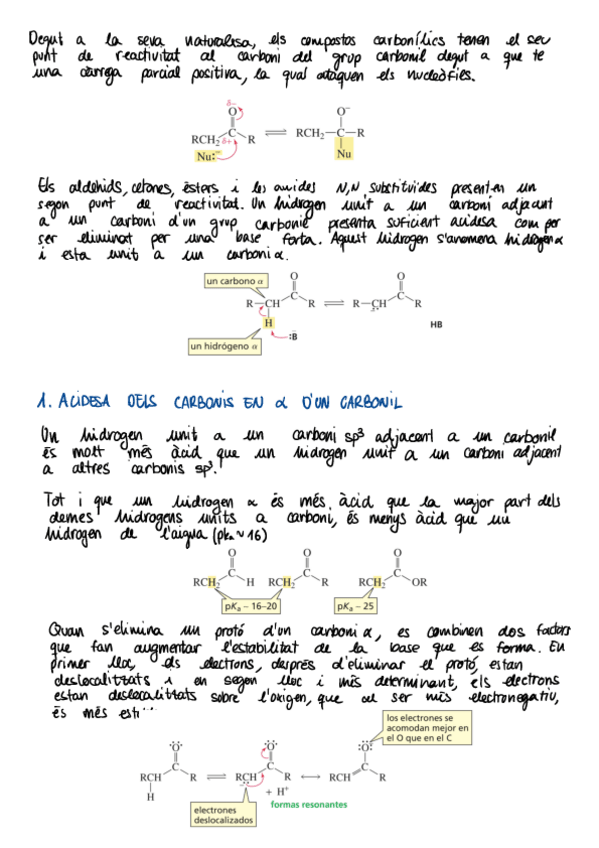 Degut a la seva naturalesa, els compostos carbonílics tenen el seu
punt de reactivitat al carboni del grup carbonil degut a que té
una càrrega parcial positiva, la qual ataquen els nucleòfils.
δ−
O
O−
RCH₂ C δ+ R ⇌ RCH₂—C—R
Nu:−
Nu
Els aldehids, cetones, èsters i les amides N,N substituides presenten un
segon punt de reactivitat. Un hidrogen unit a un carboni adjacent
a un carboni d'un grup carbonil presenta suficient acidesa com per
ser eliminat per una base forta. Aquest hidrogen s'anomena hidrogen α
i esta unit a un carboni α.
un carbono α
O
O
R—CH C R ⇌ R—CH C R
H
:B
HB
un hidrógeno α
1. ACIDESA DELS CARBONIS EN α D'UN CARBONIL
Un hidrogen unit a un carboni sp³ adjacent a un carbonil
és molt més àcid que un hidrogen unit a un carboni adjacent
a altres carbonis sp³.
Tot i que un hidrogen α és més àcid que la major part dels
demes hidrogens units a carboni, és menys àcid que un
hidrogen de l'aigua (pka ~ 16)
O O O
RCH₂ C H RCH₂ C R RCH₂ C OR
pKa ~ 16–20
pKa ~ 25
Quan s'elimina un protó d'un carboni α, es combinen dos factors
que fan augmentar l'estabilitat de la base que es forma. En
primer lloc, els electrons, després d'eliminar el protó, estan
deslocalitzats i en segon lloc i més determinant, els electrons
estan deslocalitzats sobre l'oxigen, que al ser més electronegatiu,
és més esti...
los electrones se
acomodan mejor en
el O que en el C
:O: :O: :O:−
RCH C R ⇌ RCH C R ↔ RCH C R
H
+ H+
formas resonantes
electrones
deslocalizados